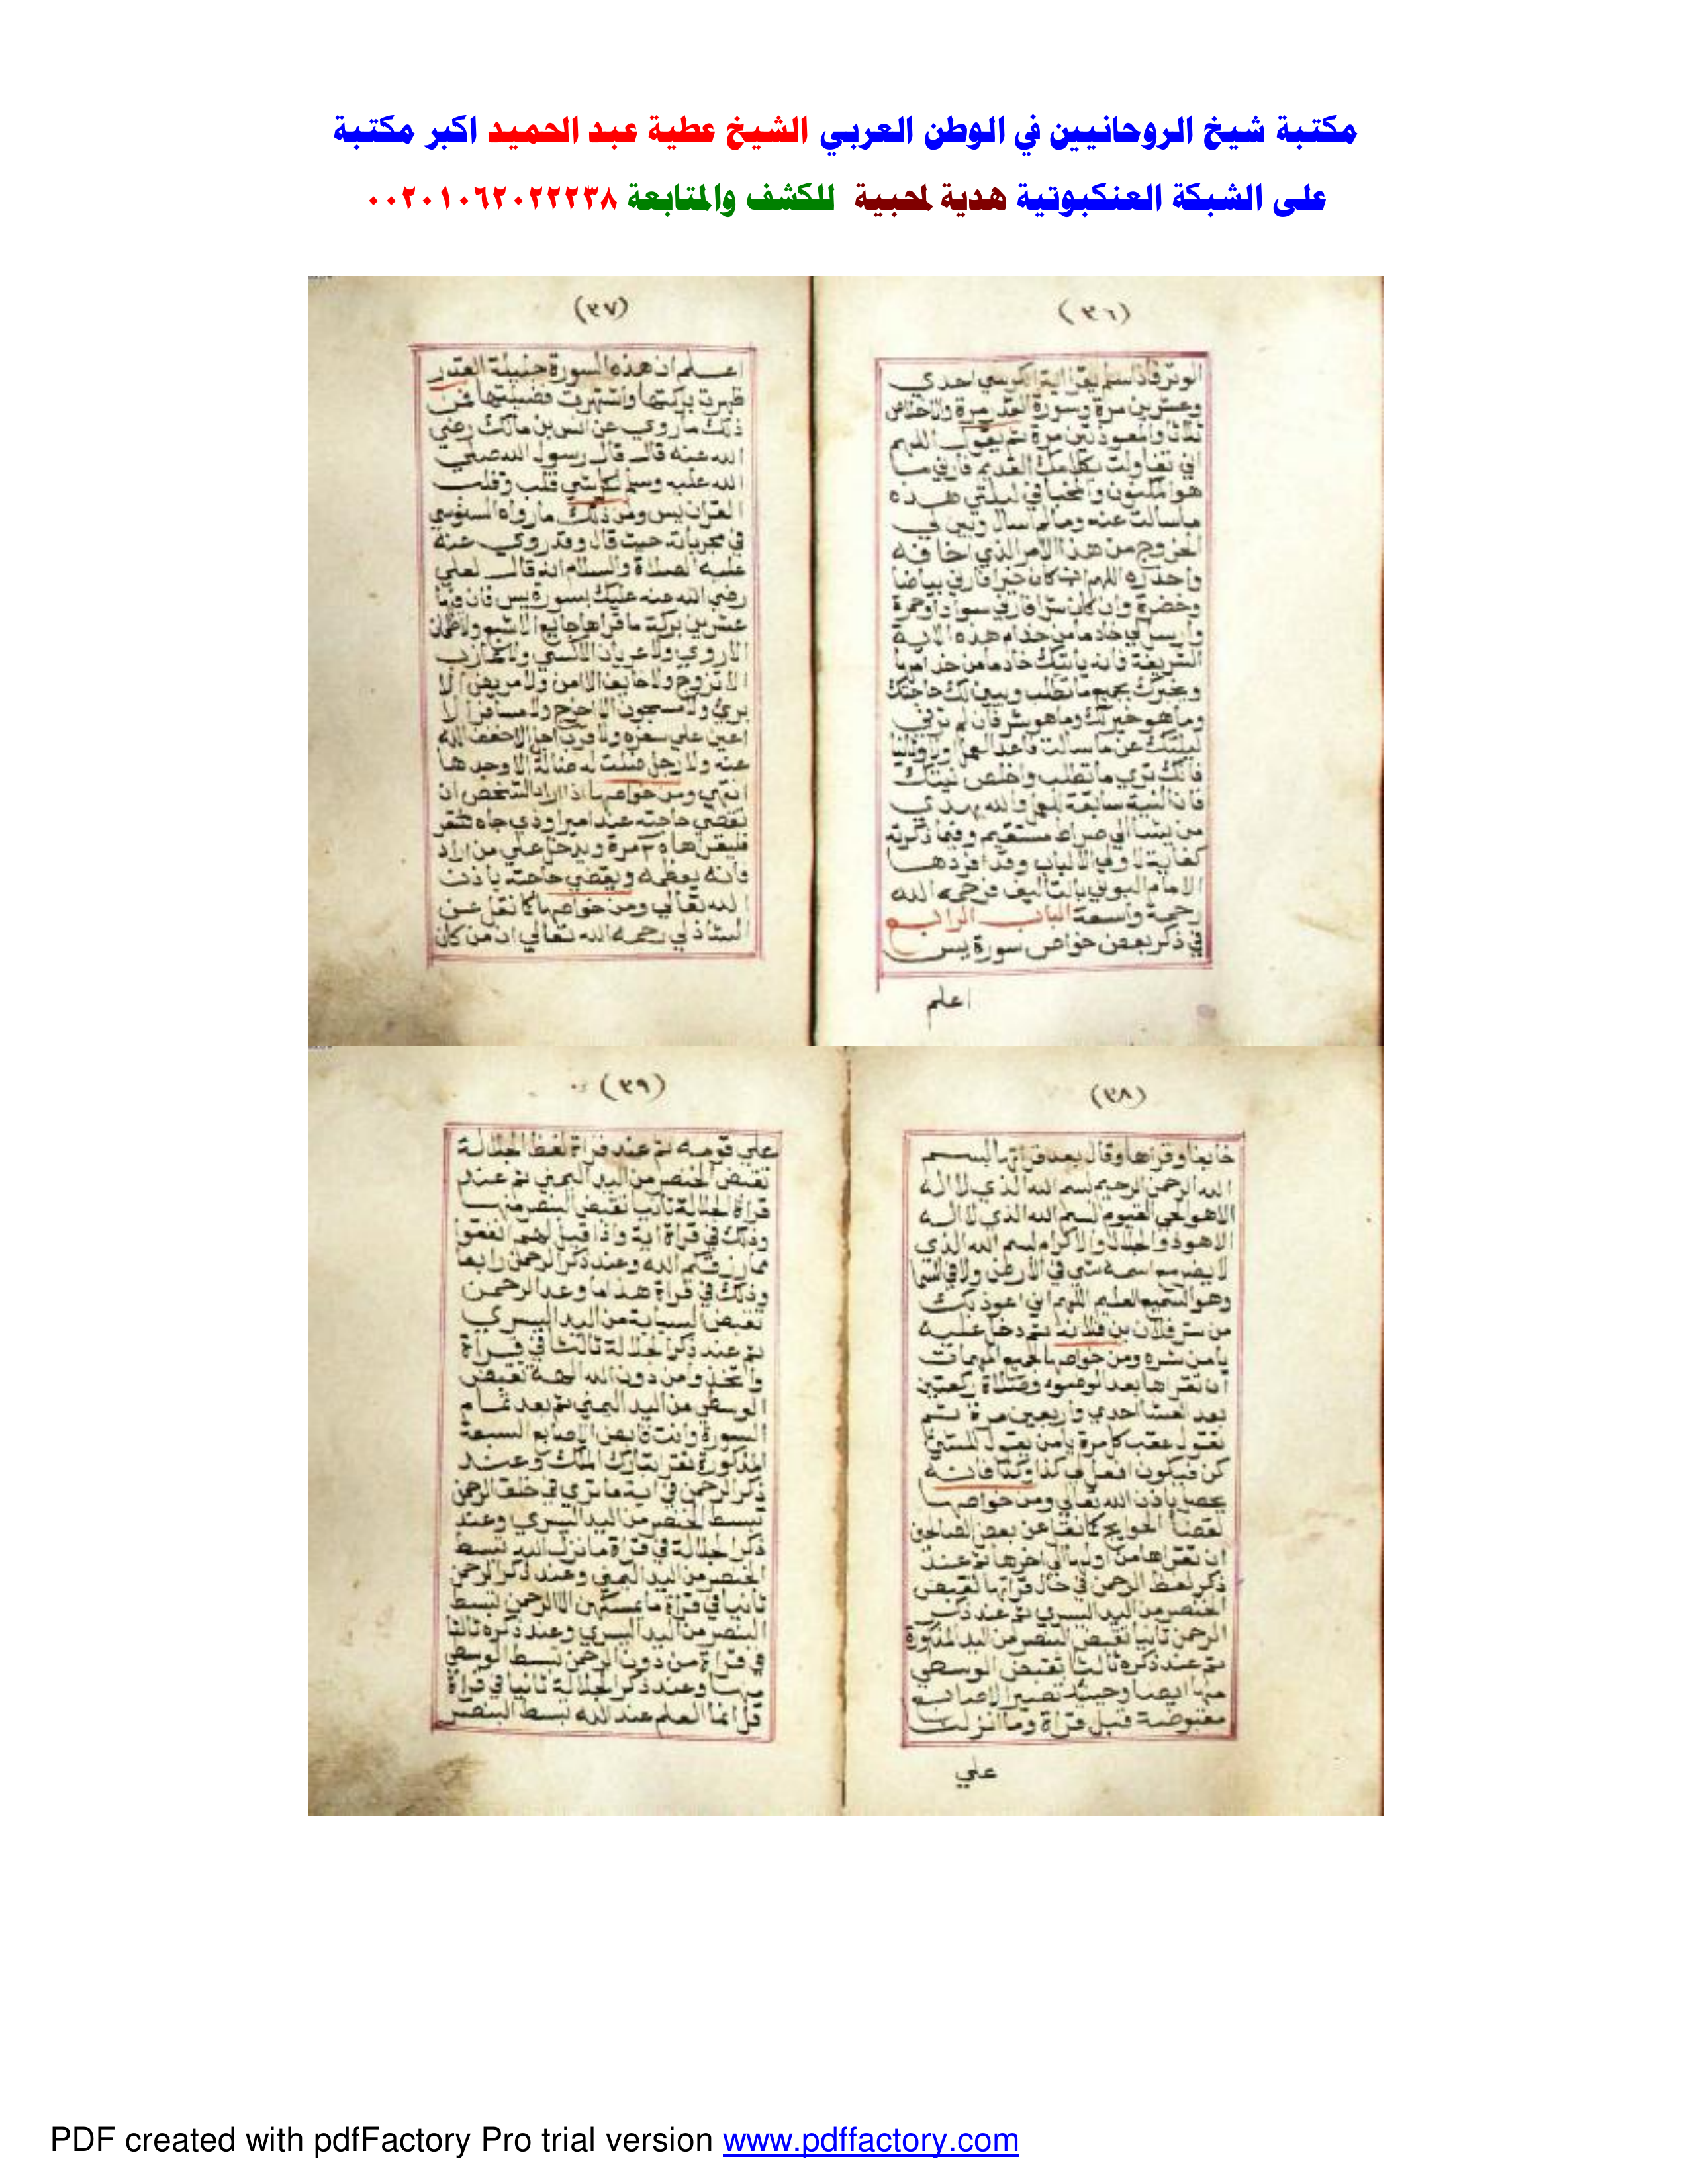 مكتبة شيخ الروحانيين في الوطن العربي الشيخ عطية عبد الحميد اكبر مكتبة
على الشبكة العنكبوتية هدية لمحبية للكشف والمتابعة ٠٠٢٠١٠٦٢٠٢٢٢٣٨
(٣٦)
الوتر فاذا سلم يقرا اية الكرسي احدي
وعشرين مرة وسورة القدر مرة والاخلاص
ثلاثا والمعوذتين مرة ثم يقول اللهم
اني تفاولت بكلامك القديم فارني ما
هو المكنون والمخبا في ليلتي هذه
ما سالت عنه وما لم اسال وبين لي
الخروج من هذا الامر الذي اخافه
واحذره اللهم ان كان خيرا فارني بياضا
وخضرة وان كان شرا فارني سوادا وحمرة
وارسل لي خادما من خدام هذه الاية
الشريفة فانه ياتيك خادما من خدامها
ويخبرك بجميع ما تطلب ويبين لك حاجتك
وما هو خير لك وما هو شر فان لم تر في
ليلتك عن ما سالت فاعد العمل وثانيا
فانك تري ما تطلب واخلص نيتك
فان النية سابقة العمل والله يهدي
من يشا الي صراط مستقيم وفيما ذكرته
كفاية لاولي الالباب وقد افردها
الامام البوني بالتاليف فرحمه الله
رحمة واسعة الباب الرابع
في ذكر بعض خواص سورة يس
اعلم
(٣٧)
اعلم ان هذه السورة جليلة القدر
ظهرت بركتها واشتهرت فضيلتها فمن
ذلك ما روي عن انس بن مالك رضي
الله عنه قال قال رسول الله صلي
الله عليه وسلم لكل شي قلب وقلب
القران يس ومن ذلك ما رواه السنوسي
في مجرباته حيث قال وقد روي عنه
عليه الصلاة والسلام انه قال لعلي
رضي الله عنه عليك بسورة يس فان فيها
عشرين بركة ما قراها جايع الا شبع ولا ظمان
الا روي ولا عريان الا كسي ولا عازب
الا تزوج ولا خايف الا امن ولا مريض الا
بري ولا مسجون الا خرج ولا مسافر الا
اعين علي سفره ولا قرب اجل الا خفف الله
عنه ولا رجل ضلت له ضالة الا وجدها
انتهي ومن خواصها اذا اراد الشخص ان
تقضي حاجته عند امير او ذي جاه
فليقراها ٢٥ مرة ويدخل علي من اراد
فانه يعظمه ويقضي حاجته باذن
الله تعالي ومن خواصها كما نقل عن
الشاذلي رحمه الله تعالي ان من كان
(٣٨)
خايفا وقراها وقال بعد قراتها بسم
الله الرحمن الرحيم بسم الله الذي لا اله
الا هو الحي القيوم بسم الله الذي لا اله
الا هو ذو الجلال والاكرام بسم الله الذي
لا يضر مع اسمه شي في الارض ولا في السما
وهو السميع العليم اللهم اني اعوذ بك
من شر فلان بن فلانة ثم دخل عليه
يامن شره ومن خواصها لجميع المهمات
ان تقراها بعد الوضوء وصلاة ركعتين
بعد العشا احدي واربعين مرة ثم
تقول عقب كل مرة يا من يقول للشي
كن فيكون افعل لي كذا وكذا فانه
يحصل باذن الله تعالي ومن خواصها
لقضا الحوايج كما نقل عن بعض الصالحين
ان تقراها من اولها الي اخرها ثم عند
ذكر لفظ الرحمن في حال قراتها تقبض
الخنصر من اليد اليسري ثم عند ذكر
الرحمن ثانيا تقبض البنصر من اليد المذكورة
ثم عند ذكره ثالثا تقبض الوسطي
منها ايضا وحينيذ تصير الاصابع
مقبوضة قبل قراة وما انزلنا
علي
(٣٩)
علي قومه ثم عند قراة لفظ الجلالة
تقبض الخنصر من اليد اليمني ثم عند
قراة الجلالة ثانيا تقبض البنصر منها
وذلك في قراة اية واذا قيل لهم انفقوا
مما رزقكم الله وعند ذكر الرحمن رابعا
وذلك في قراة هذا ما وعد الرحمن
تقبض السبابة من اليد اليسري
ثم عند ذكر الجلالة ثالثا في قراة
واتخذوا من دون الله الهة تقبض
الوسطي من اليد اليمني ثم بعد تمام
السورة وانت قابض الاصابع السبعة
المذكورة تقرا تبارك الملك وعند
ذكر الرحمن في اية ما تري في خلق الرحمن
تبسط الخنصر من اليد اليسري وعند
ذكر الجلالة في قراة ما نزل الله تبسط
الخنصر من اليد اليمني وعند ذكر الرحمن
ثانيا في قراة ما يمسكهن الا الرحمن تبسط
البنصر من اليد اليسري وعند ذكره ثالثا
في قراة من دون الرحمن تبسط الوسطي
منها وعند ذكر الجلالة ثانيا في قراة
قل انما العلم عند الله تبسط البنصر
PDF created with pdfFactory Pro trial version www.pdffactory.com